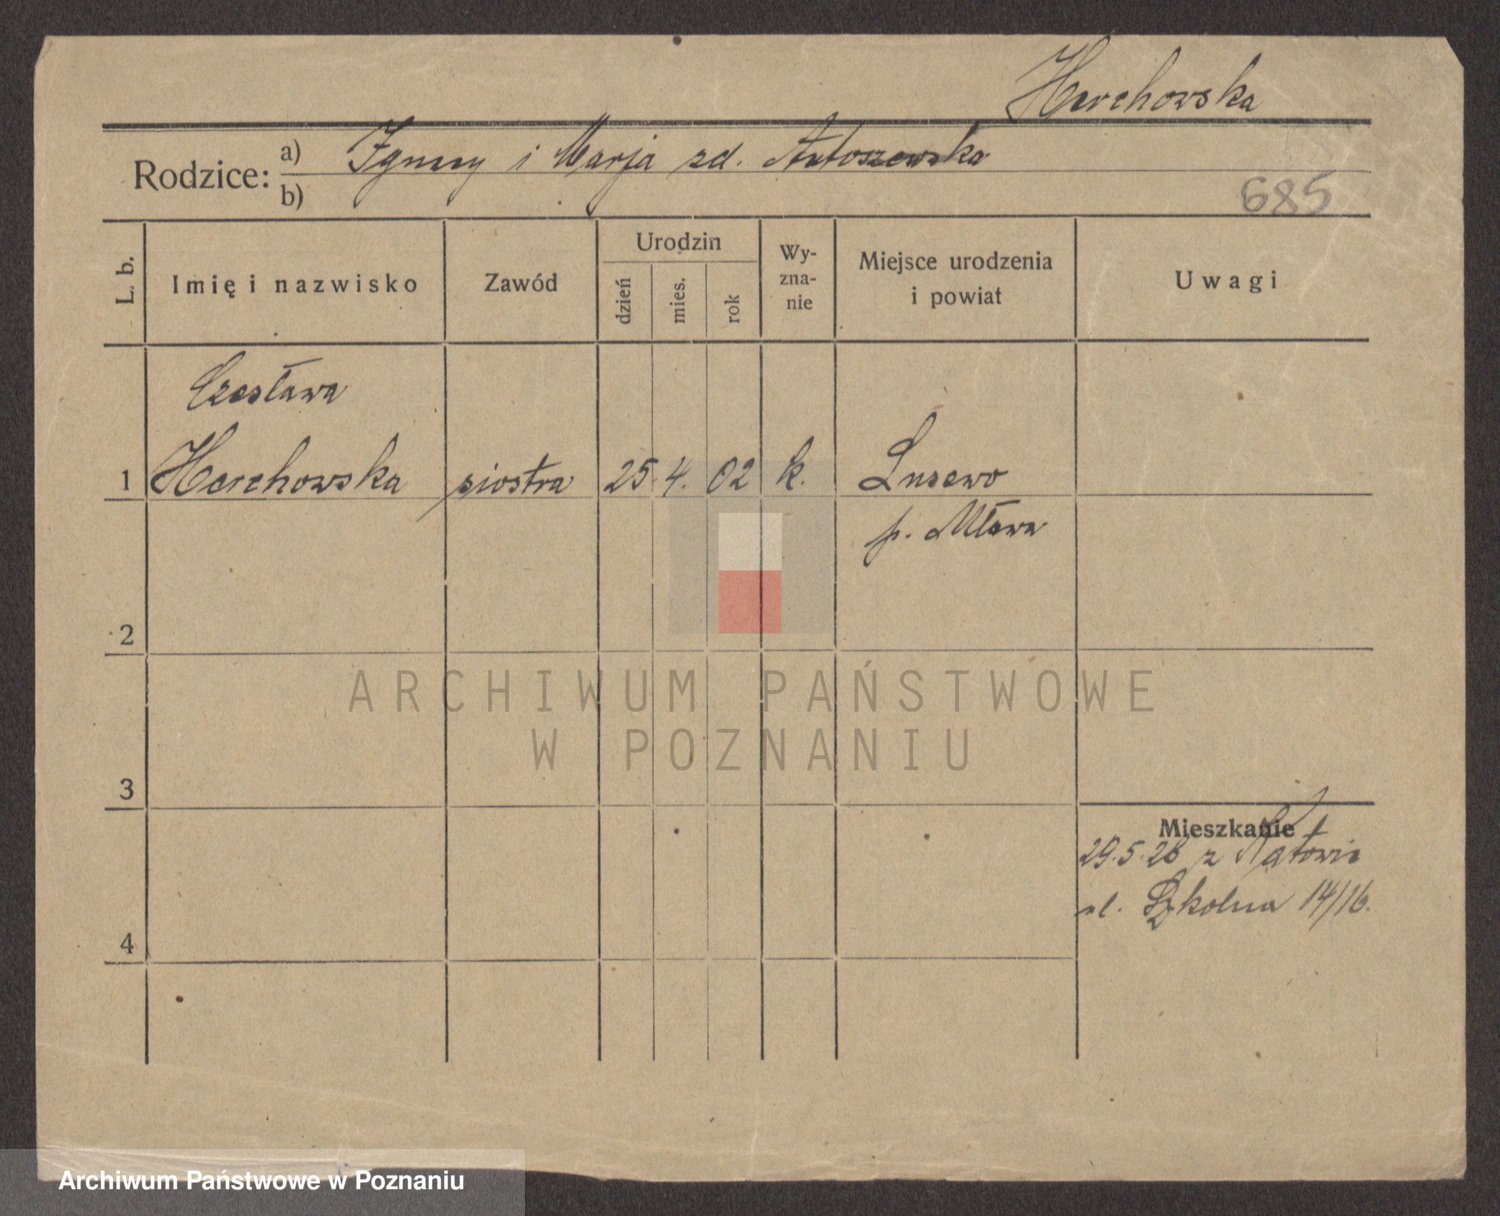 Herchowska
Rodzice: a) Ignacy i Marja zd. Antoszewska
b)
685
L. b.
Imię i nazwisko
Zawód
Urodzin
dzień
mies.
rok
Wy-
zna-
nie
Miejsce urodzenia
i powiat
Uwagi
Czesława
1 Herchowska siostra 25. 4. 02 k. Lusewo
p. Mława
2
ARCHIWUM PAŃSTWOWE
W POZNANIU
3
Mieszkanie
29.5.28 z Katowic
ul. Szkolna 14/16.
4
Archiwum Państwowe w Poznaniu